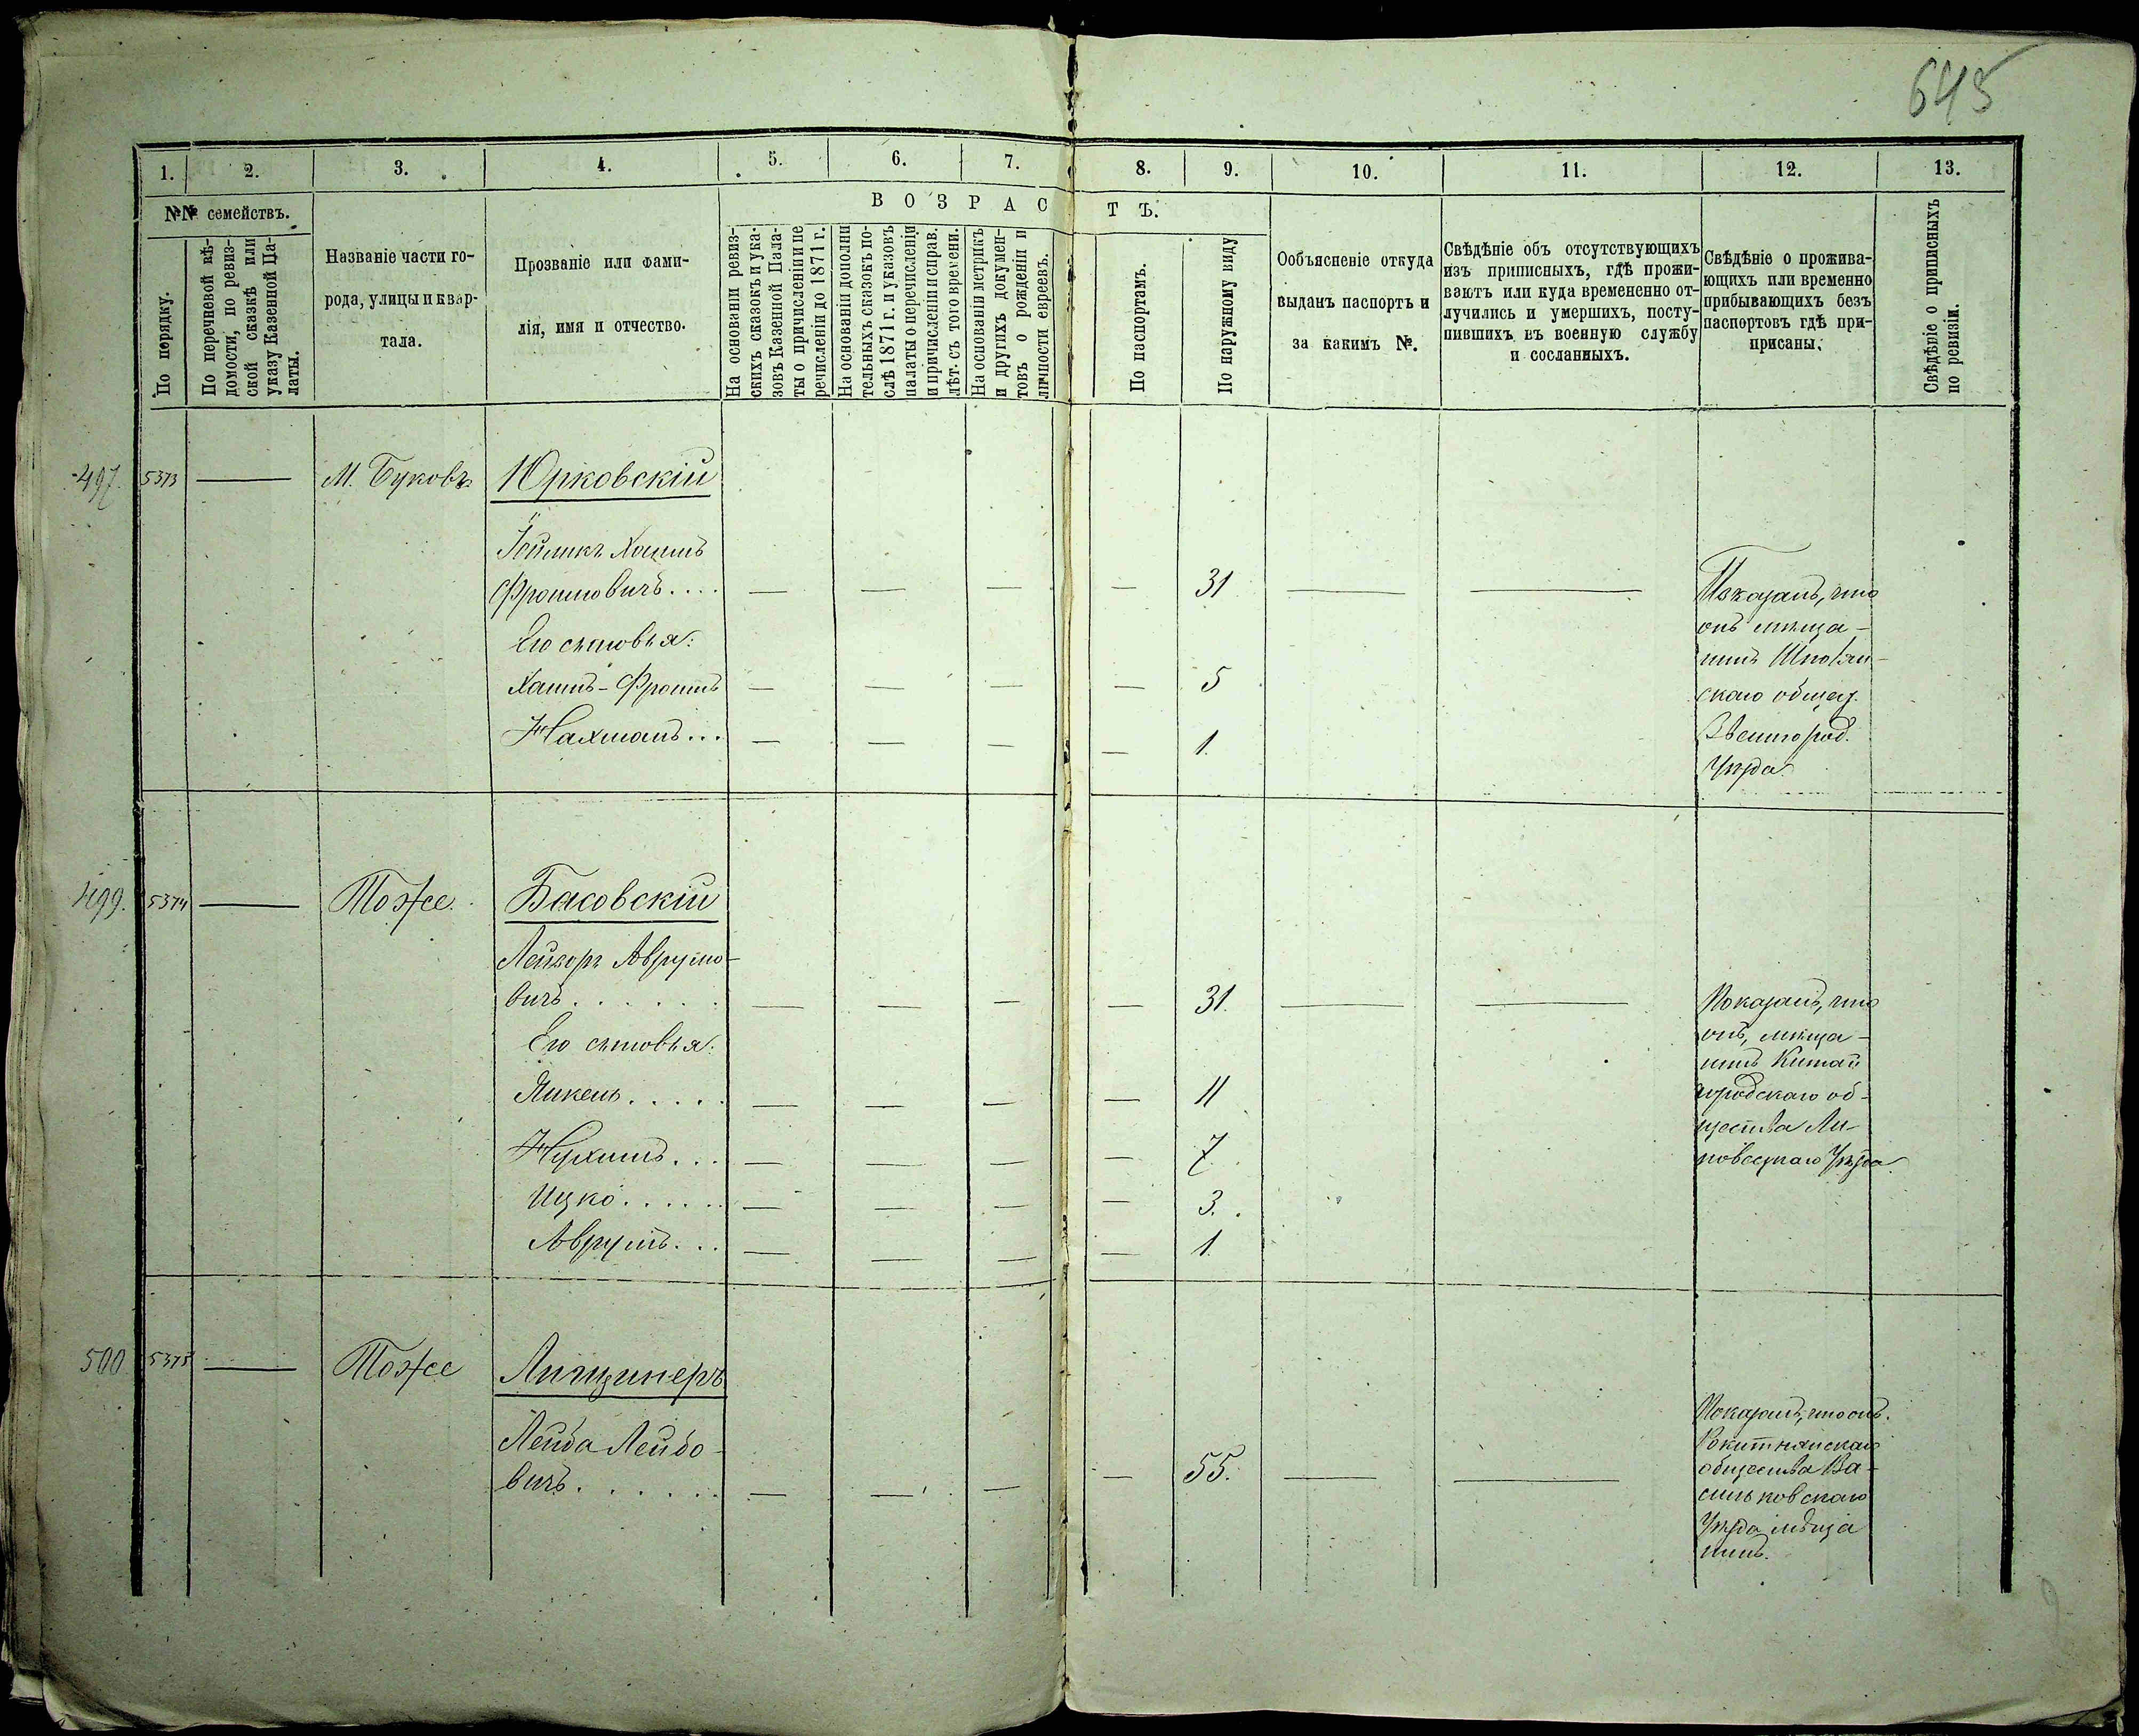 645
1. 2. 3. 4. 5. 6. 7. 8. 9. 10. 11. 12. 13.
№№ семействъ.
По порядку.
По перечневой вѣ-
домости, по ревиз-
ской сказкѣ или
указу Казенной Па-
латы.
Названіе части го-
рода, улицы и квар-
тала.
Прозваніе или фами-
лія, имя и отчество.
ВОЗРАСТЪ.
На основаніи ревиз-
скихъ сказокъ и ука-
зовъ Казенной Пала-
ты о причисленіи и пе
речисленіи до 1871 г.
На основаніи дополни
тельныхъ сказокъ по-
слѣ 1871 г. и указовъ
палаты о перечисленіи
и причисленіи и справ.
лѣт. съ того времени.
На основаніи метрикъ
и другихъ докумен-
товъ о рожденіи и
личности евреевъ.
По паспортамъ.
По наружному виду
Ообъясненіе откуда
выданъ паспортъ и
за какимъ №.
Свѣдѣніе объ отсутствующихъ
изъ приписныхъ, гдѣ прожи-
ваютъ или куда времененно от-
лучились и умершихъ, посту-
пившихъ въ военную службу
и сосланныхъ.
Свѣдѣніе о прожива-
ющихъ или временно
прибывающихъ безъ
паспортовъ гдѣ при-
писаны.
Свѣдѣніе о приписныхъ
по ревизіи.
497. 5373 — М. Буковъ Юрковскій
Хаимъ
Фроимовичъ.... — — — — 31 — — Показалъ, что
Его сыновья: онъ мѣща-
нинъ
Хаимъ-Фроимъ — — — — 5 скаго общест.
Нахманъ... — — — — 1. Звенигород.
Уѣзда.
499. 5374 — Тоже. Басовскій
Лейзоръ Аврумо-
вичъ...... — — — — 31. — — Показалъ, что
Его сыновья: онъ, мѣща-
нинъ Китай
Янкель..... — — — — 11 городскаго об-
щества Ли-
Нухимъ... — — — — 7. повецкаго Уѣзда.
Ицко...... — — — — 3.
Аврумъ... — — — — 1.
500 5375 — Тоже Липщинеръ
Лейба Лейбо-
вичъ...... — — — — 55. — — Показалъ, что онъ
Рокитнянскаго
общества Ва-
сильковскаго
Уѣзда мѣща
нинъ.